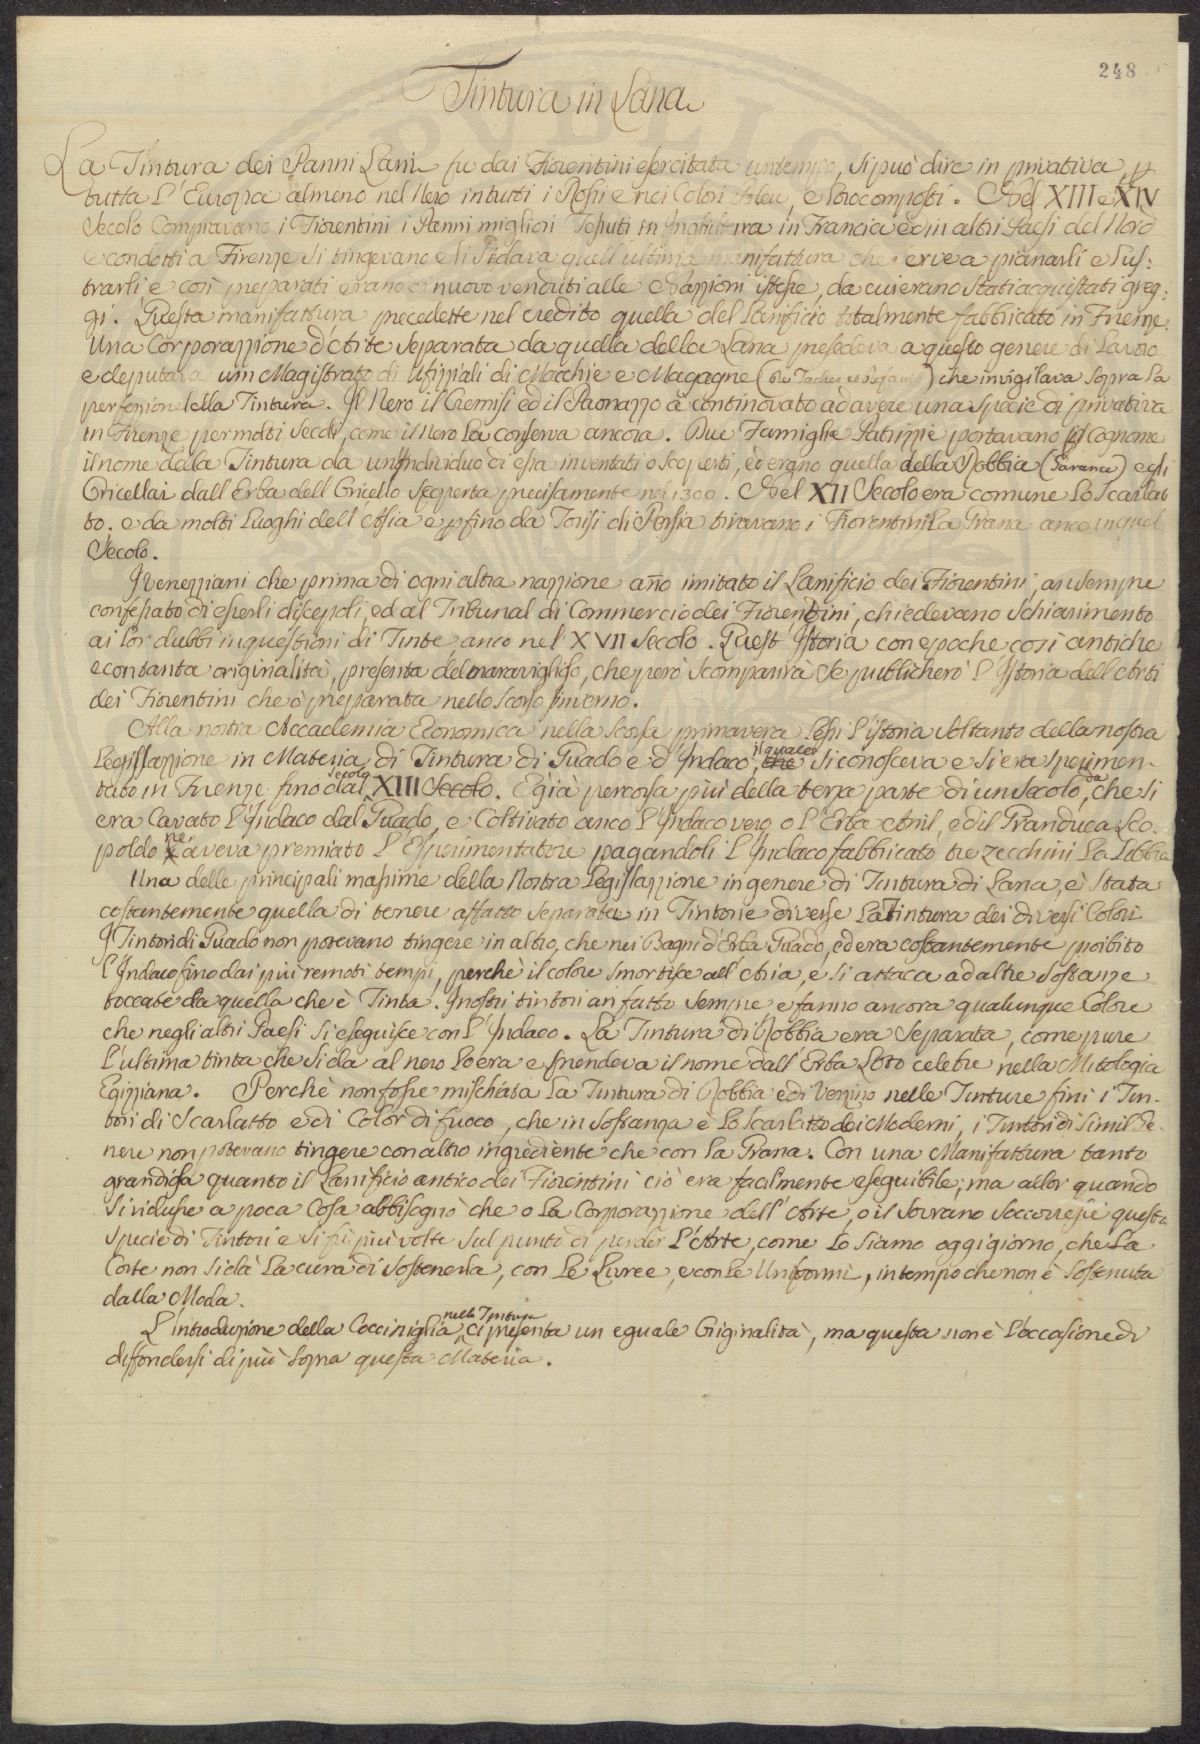 248
Tintura in Lana
La Tintura dei Panni Lani fu dai Fiorentini esercitata un tempo, si può dire in privativa, p
tutta l'Europa almeno nel Nero in tutti i Rossi e nei Colori Bleu, e loro composti. Nel XIII e XIV
Secolo Compravano i Fiorentini i Panni migliori Tessuti in Inghilterra in Francia ed in altri Paesi del Nord
e condotti a Firenze si tingevano e li si dava quell'ultima manifattura che serve a pianarli e lus:
trarli e così preparati erano di nuovo venduti alle Nazzioni istesse, da cui erano stati acquistati greg:
gi. Questa manifattura precedette nel credito quella del Lanificio totalmente fabbricato in Firenze.
Una Corporazzione d'Arte separata da quella della Lana presedeva a questo genere di Lavoro
e deputava un Magistrato di Ufizziali di Macchie e Magagne ( ) che invigilava sopra la
perfezione della Tintura. Il Nero il Cremisi ed il Paonazzo à continovato ad avere una specie di privativa
in Firenze per molti Secoli, come il Nero la conserva ancora. Due Famiglie Patrizzie portavano p Cognome
il nome dalla Tintura da un Individuo di essa inventati o scoperti, ed ergno quella della Robbia (Garance) e gli
Oricellai dall'Erba dell'Oricello scoperta precisamente nel 1300. Nel XII Secolo era comune lo Scarlat
to. e da molti Luoghi dell'Asia e pfino da Torisi di Persia tiravano i Fiorentini la Grana anco in quel
Secolo.
I Venezziani che prima di ogni altra nazzione año imitato il Lanificio dei Fiorentini, an sempre
confessato di esserli discepoli, ed al Tribunal di Commercio dei Fiorentini, chiedevano schiarimento
ai lor dubbi in questioni di Tinte, anco nel XVII Secolo. Quest'Istoria con epoche così antiche
e con tanta originalità, presenta del maraviglioso, che però scomparirà se pubblicherò l'Istoria dell'Arti
dei Fiorentini che ò preparata nello scorso Inverno.
Alla nostra Accademia Economica nella scorsa primavera lessi l'istoria soltanto della nostra
Legislazzione in Materia di Tintura di Guado e d'Indaco, il quale che si conosceva e si era sperimen-
tato in Firenze fino dal secolo XIII Secolo. E già percorsa più della terza parte di un Secolo, da che si
era Cavato l'Indaco dal Guado, e Coltivato anco l'Indaco vero o l'Erba Anil, ed il Granduca Leo-
poldo ne aveva premiato l'Esperimentatore pagandoli l'Indaco fabbricato tre zecchini la Libbra
Una delle principali massime della Nostra Legislazzione in genere di Tintura di Lana, è stata
costantemente quella di tenere affatto separate in Tintorie diverse la Tintura dei diversi Colori
I Tintori di Guado non potevano tingere in altro, che nei Bagni d'Erba Guado, ed era costantemente proibito
l'Indaco fino dai più remoti tempi, perchè il colore smortisce all'Aria, e si attacca ad altre sostanze
toccate da quella che è Tinta. I nostri tintori an fatto sempre e fanno ancora qualunque Colore
che negli altri Paesi si eseguisce con l'Indaco. La Tintura di Robbia era separata, come pure
l'ultima tinta che si da al nero lo era e prendeva il nome dall'Erba Loto celebre nella Mitologia
Egizziana. Perchè non fosse mischiata la Tintura di Robbia e di Verzino nelle Tinture fini i Tin-
tori di Scarlatto e di Color di fuoco, che in sostanza è lo Scarlatto dei Moderni, i Tintori di simil Ge-
nere non potevano tingere con altro ingrediente che con la Grana. Con una Manifattura tanto
grandiosa quanto il Lanificio antico dei Fiorentini ciò era facilmente eseguibile; ma allor quando
si ridusse a poca Cosa abbisognò che o la Corporazzione dell'Arte, o il Sovrano soccorresse questa
specie di Tintori e si fù più volte sul punto di perder l'Arte, come lo siamo oggi giorno, che la
Corte non si dà la cura di sostenerla, con le Livree, e con le Uniformi, in tempo che non è sostenuta
dalla Moda.
L'introduzione della Cocciniglia nella Tintura ci presenta un eguale Originalità, ma questa non è l'occasione di
diffondersi di più sopra questa Materia.